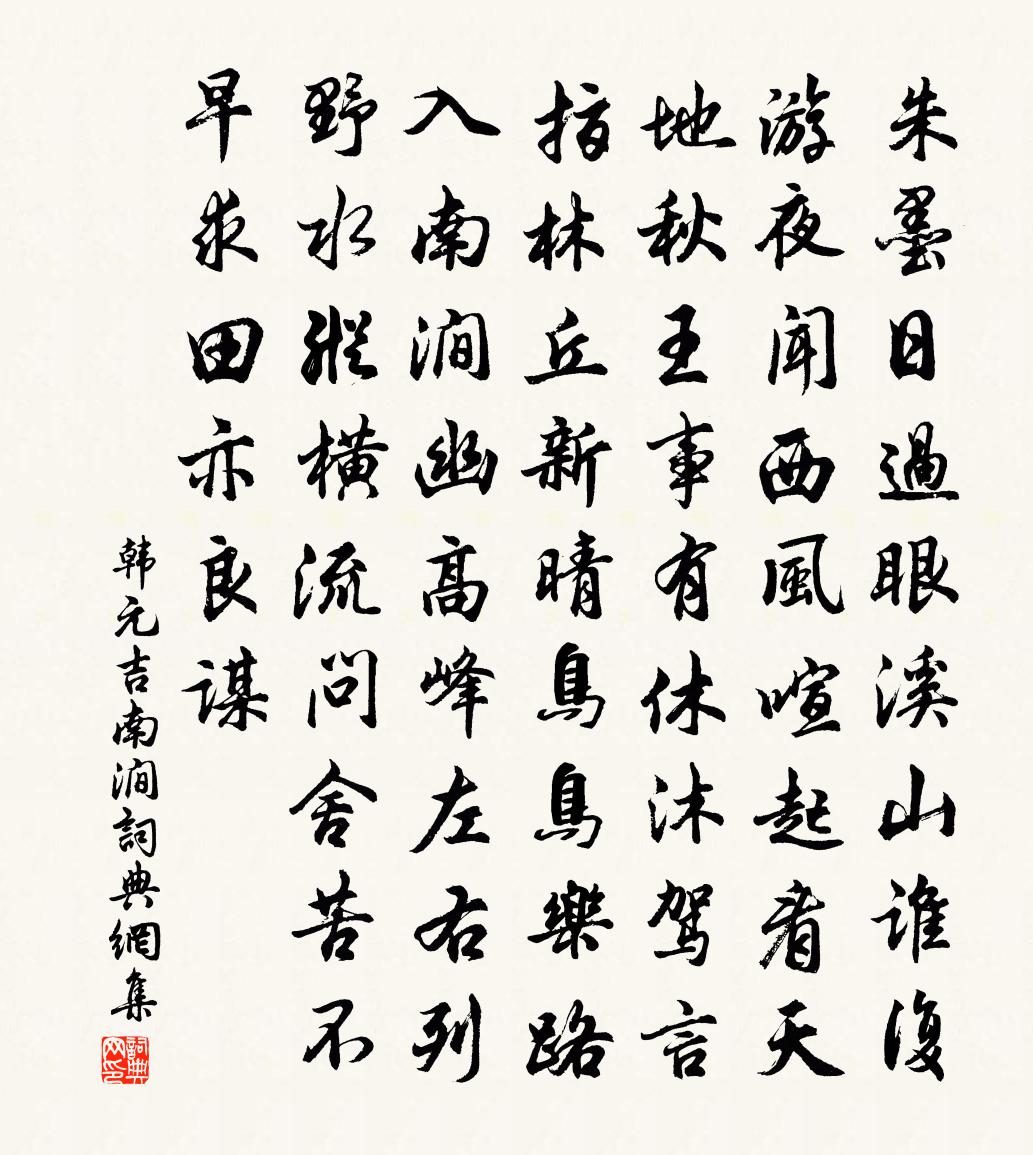 朱墨日過眼溪山誰復
游夜聞西風喧起看天
地秋王事有休沐駕言
指林丘新晴鳥鳥樂路
入南澗幽高峰左右列
野水縱橫流問舍苦不
早求田亦良謀
韩元吉南澗詞典網集
詞典网印